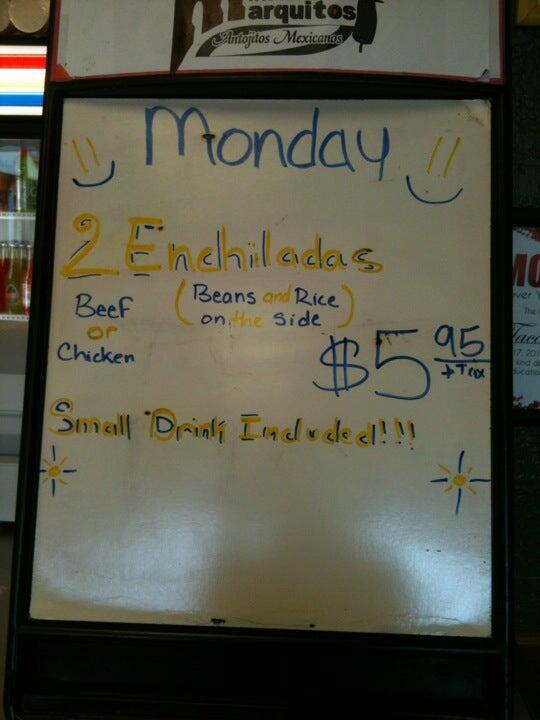 Marquitos
Antojitos Mexicanos
Monday
2 Enchiladas
Beef
or
Chicken
(Beans and Rice
on the Side)
$5 95
+ Tax
Small Drink Included!!!